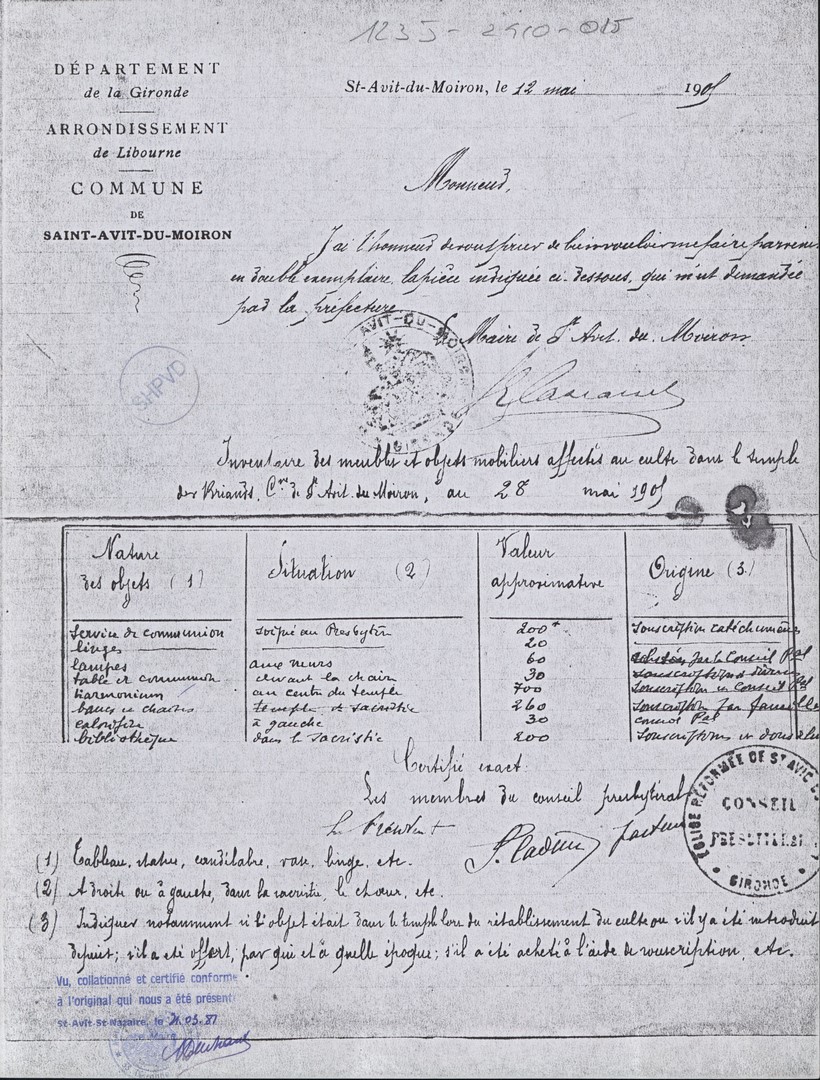 123 J - 2910 - 015
DÉPARTEMENT
de la Gironde
ARRONDISSEMENT
de Libourne
COMMUNE
DE
SAINT-AVIT-DU-MOIRON
St-Avit-du-Moiron, le 12 mai 1905
Monsieur,
J'ai l'honneur de vous prier de bien vouloir me faire parvenir
en double exemplaire, la pièce indiquée ci-dessous, qui m'est demandée
par la préfecture
Le Maire de St Avit-du-Moiron
AVIT-DU-MOIRON
GIRONDE
SHPVD
Inventaire des meubles et objets mobiliers affectés au culte dans le temple
des Briands, Cne de St Avit-du-Moiron, au 28 mai 1905
Nature des objets (1) Situation (2) Valeur approximative Origine (3)
Service de communion au Presbytère 200 souscription catéchumènes
linges 20
lampes aux murs 60 par le Conseil Pal
table de communion devant la chaire 30 souscriptions
harmonium au centre du temple 700 souscription et Conseil Pal
bancs et chaises temple et sacristie 260 souscription par familles
calorifère à gauche 30 Pal
bibliothèque dans la sacristie 200 souscriptions et dons
Certifié exact:
Les membres du conseil presbytéral
Le Président
pasteur
ÉGLISE RÉFORMÉE DE ST AVIT
CONSEIL
PRESBYTÉRAL
GIRONDE
(1) Tableau, statue, candélabre, vase, linge, etc.
(2) A droite ou à gauche, dans la sacristie, le chœur, etc.
(3) Indiquer notamment si l'objet était dans le temple lors du rétablissement du culte ou s'il y a été introduit
depuis; s'il a été offert, par qui et à quelle époque; s'il a été acheté à l'aide de souscription, etc.
Vu, collationné et certifié conforme
à l'original qui nous a été présent
St-Avit-St-Nazaire, le 21.05.87